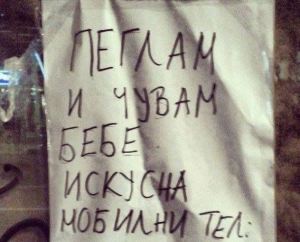 ПЕГЛАМ
И ЧУВАМ
БЕБЕ
ИСКУСНА
МОБИЛНИ ТЕЛ: